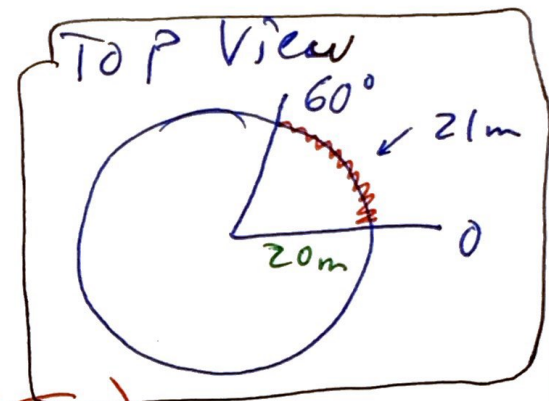 TOP View
60°
21m
20m
0